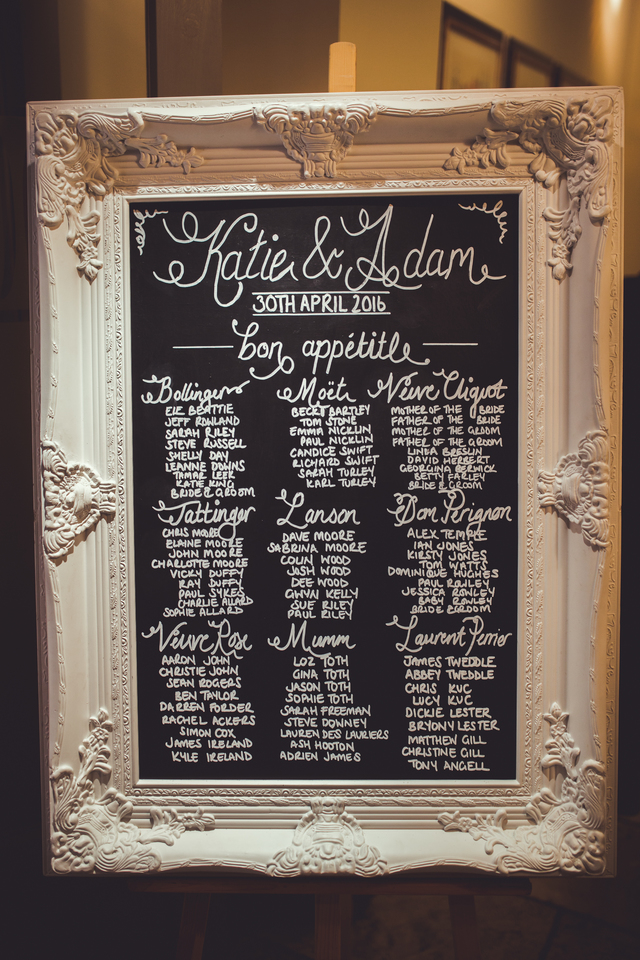 Katie & Adam
30TH APRIL 2016
bon appétitle
Bollinger
EKE BEATTIE
JEFF ROWLAND
SARAH RILEY
STEVE RUSSELL
SMELLY DAY
LEANNE DOWNS
TAMAR LEEK
KATE KING
BRIDE & GROOM
Moët
BECKY BARTLEY
TOM STONE
EMMA NICKLIN
PAUL NICKLIN
CANDICE SWIFT
RICHARD SWIFT
SARAH TURLEY
KARL TURLEY
Veuve Cliquot
MOTHER OF THE BRIDE
FATHER OF THE BRIDE
MOTHER OF THE GROOM
FATHER OF THE GROOM
LINDA BRESLIN
DAVID HERBERT
GEORGINA BERWICK
BETTY FARLEY
BRIDE & GROOM
Tattinger
CHRIS MOORE
ELAINE MOORE
JOHN MOORE
CHARLOTTE MOORE
VICKY DUFFY
RAY DUFFY
PAUL SYKES
CHARLIE ALLARD
SOPHIE ALLARD
Lanson
DAVE MOORE
SABRINA MOORE
COLIN WOOD
JOSH WOOD
DEE WOOD
GWYN KELLY
SUE RILEY
PAUL RILEY
Don Perignon
ALEX TEMPLE
IAN JONES
KIRSTY JONES
TOM WATTS
DOMINIQUE HUGHES
PAUL ROWLEY
JESSICA ROWLEY
BABY ROWLEY
BRIDE & GROOM
Veuve Rose
AARON JOHN
CHRISTIE JOHN
SEAN ROGERS
BEN TAYLOR
DARREN FORDER
RACHEL ACKERS
SIMON COX
JAMES IRELAND
KYLE IRELAND
Mumm
LOZ TOTH
GINA TOTH
JASON TOTH
SOPHIE TOTH
SARAH FREEMAN
STEVE DOWNEY
LAUREN DES LAURIERS
ASH HOOTON
ADRIEN JAMES
Laurent Perrier
JAMES TWEDDLE
ABBEY TWEDDLE
CHRIS KUC
LUCY KUC
DICKIE LESTER
BRYONY LESTER
MATTHEW GILL
CHRISTINE GILL
TONY ANGELL